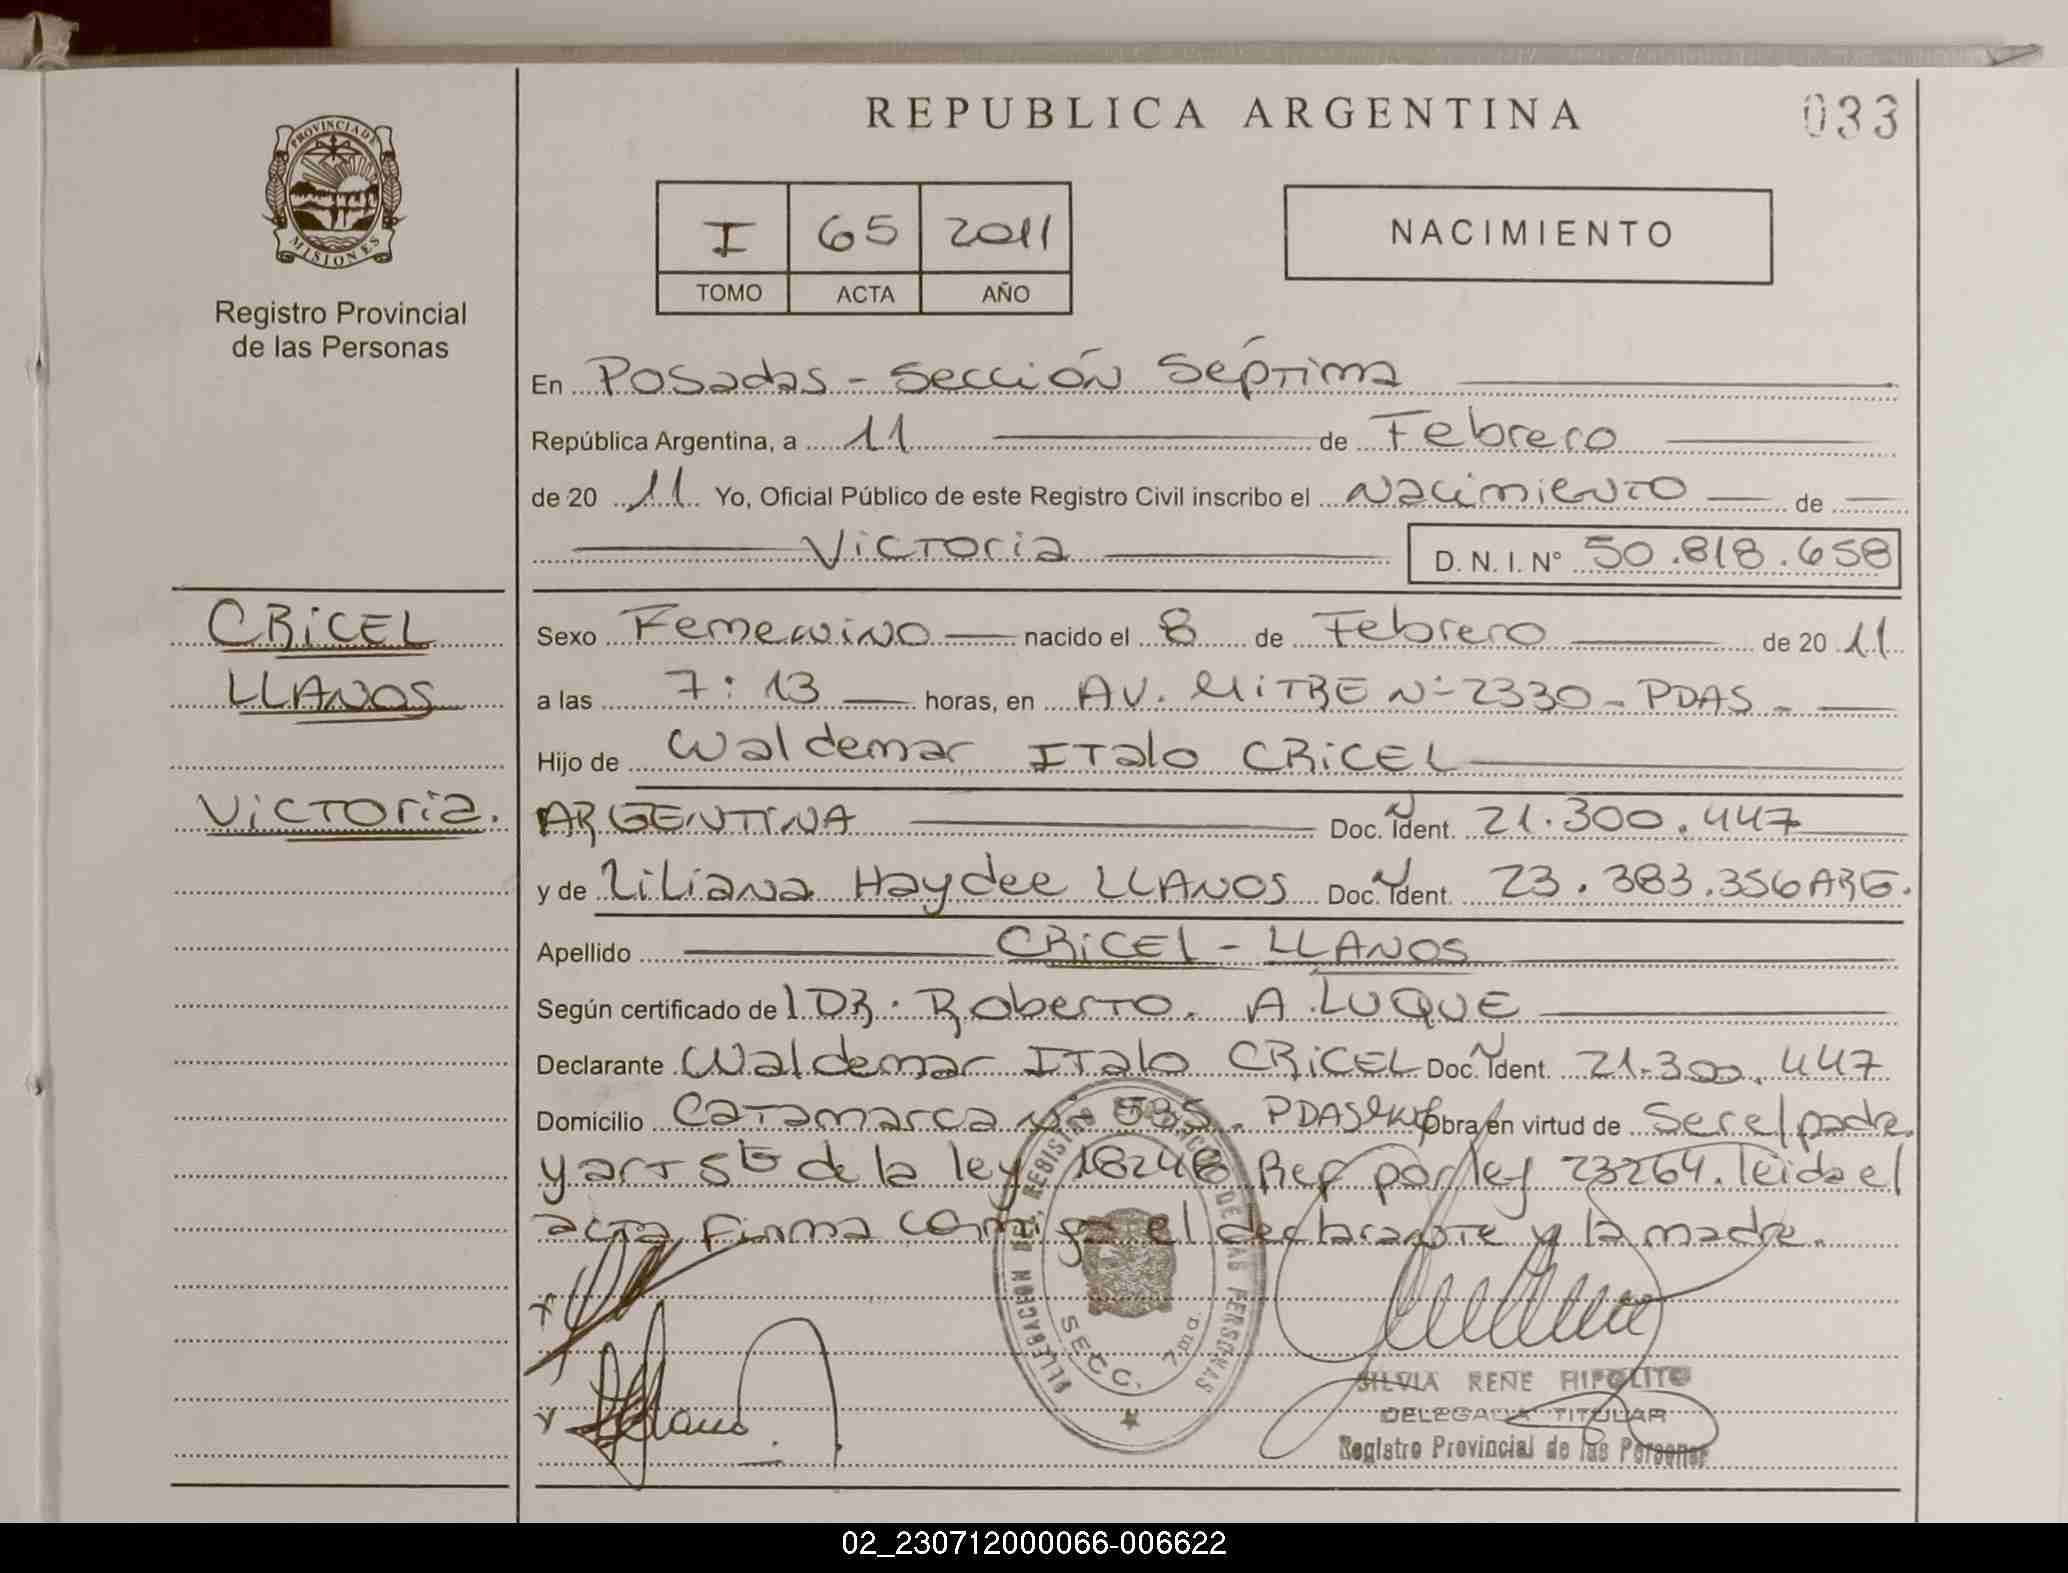 REPUBLICA ARGENTINA
033
PROVINCIA DE
MISIONES
Registro Provincial
de las Personas
I 65 2011
TOMO ACTA AÑO
NACIMIENTO
En Posadas - Sección Séptima
República Argentina, a 11 de Febrero
de 20 11 Yo, Oficial Público de este Registro Civil inscribo el Nacimiento de
Victoria D. N. I. Nº 50.818.658
CRICEL
LLANOS
Victoria.
Sexo Femenino nacido el 8 de Febrero de 20 11
a las 7:13 horas, en AV. MITRE Nº 2330 - PDAS -
Hijo de Waldemar Italo CRICEL
ARGENTINA Doc. Ident. 21.300.447
y de Liliana Haydee LLANOS Doc. Ident. 23.383.356 ARG.
Apellido CRICEL - LLANOS
Según certificado de DR. Roberto. A. LUQUE
Declarante Waldemar Italo CRICEL Doc. Ident. 21.300.447
Domicilio Catamarca Nº 585 - PDAS Obra en virtud de Ser el padre
y art 5to de la ley 18248 Ref por ley 23264. leida el
acta firma conmigo el declarante y la madre.
DELEGACION DEL REGISTRO PROVINCIAL DE LAS PERSONAS
SECC. 7ma.
SILVIA RENE HIPOLITO
DELEGADA TITULAR
Registro Provincial de las Personas
02_230712000066-006622